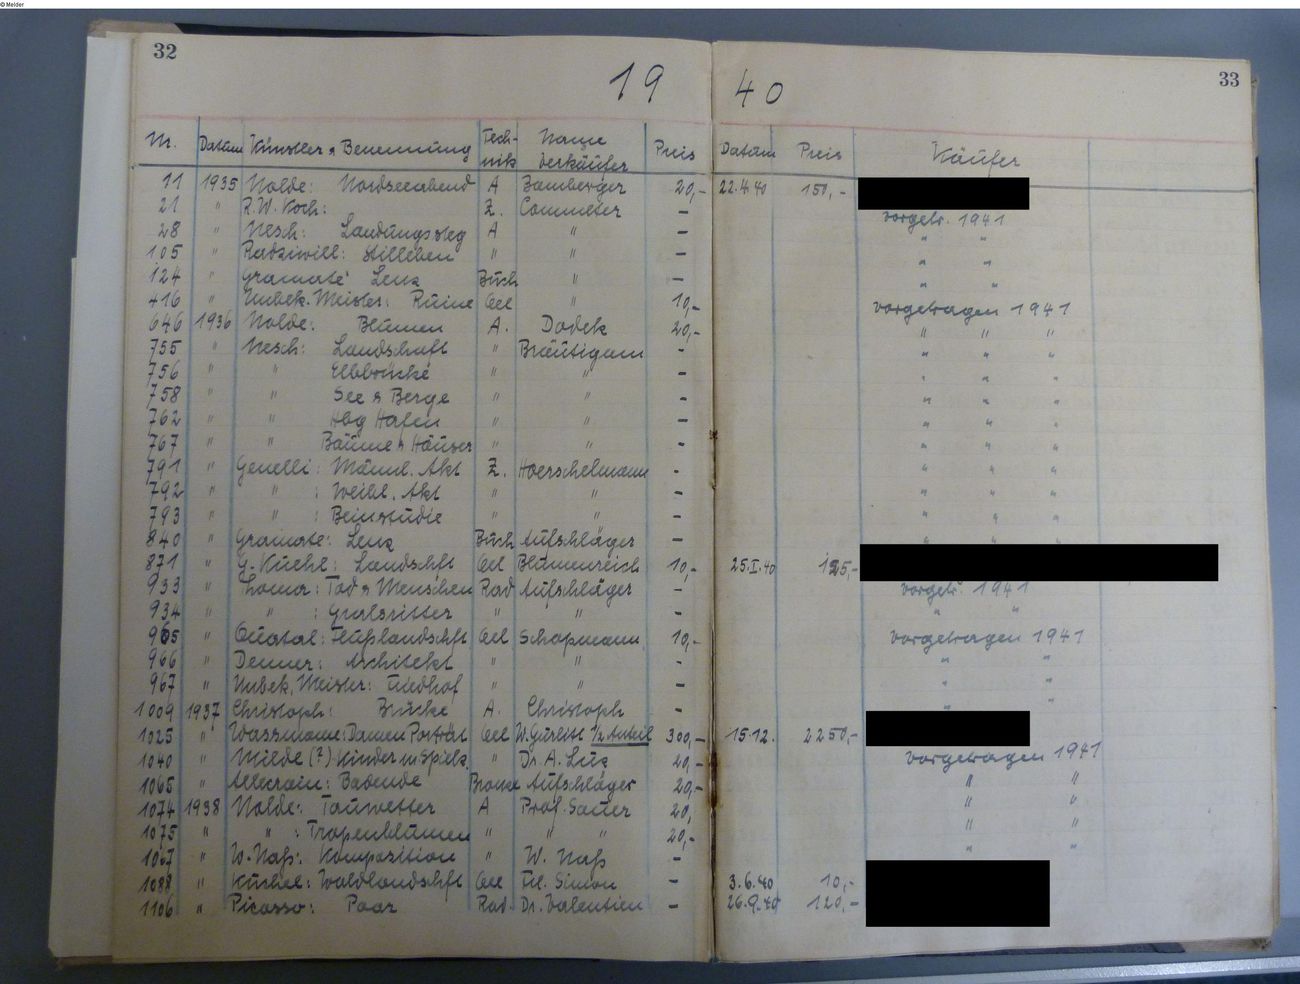 © Melder
32
33
19 40
Nr. Datum Künstler & Benennung Tech-nik Name Verkäufer Preis Datum Preis Käufer
11 1935 Nolde: Nordseeabend A Bamberger 20,- 22.4.40 150,-
21 " R.W. Koch: Z. Commeter - vorgetr. 1941
28 " Nesch: Landungssteg A " - " "
105 " Radziwill: Stilleben " " - " "
124 " Gramaté Lenz Buch " - " "
416 " Unbek. Meister: Ruine Oel " 10,- vorgetragen 1941
646 1936 Nolde: Blumen A. Dodek 20,- " " "
755 " Nesch: Landschaft " Bräutigam - " " "
756 " " Elbbrücke " " - " " "
758 " " See & Berge " " - " " "
762 " " Hbg Hafen " " - " " "
767 " " Bäume & Häuser " " - " " "
791 " Genelli: Männl. Akt Z. Hoerschelmann - " " "
792 " " : Weibl. Akt " " - " " "
793 " " : Beinstudie " " - " " "
840 " Gramate: Lenz Buch Aufschläger - " " "
871 " G. Kuehl: Landschft Oel Blumenreich 10,- 25.I.40 125,-
933 " : Tod & Menschen Rad Aufschläger - vorgetr. 1941
934 " " : Gralsritter " " - " "
965 " : Flußlandschft Oel Schapmann 10,- vorgetragen 1941
966 " Denner: Architekt " " - " "
967 " Unbek. Meister: Friedhof " " - " "
1009 1937 Christoph: Brücke A. Christoph - " "
1025 " Wassmann: Damen Porträt Oel W. Gurlitt 1/2 Anteil 300,- 15.12. 2250,-
1040 " Milde (?) Kinder m. Spielz. " Dr. A. Lux 20,- vorgetragen 1941
1065 " : Badende Bronze Aufschläger 20,- " "
1074 1938 Nolde: Tauwetter A Prof. Sauer 20, " "
1075 " " : Tropenblumen " " " 20,- " "
1067 " W. Naß: Komposition " W. Naß - " "
1088 " : Waldlandschft Oel Frl. Simon - 3.6.40 10,-
1106 " Picasso: Paar Rad. Dr. Valentien - 26.9.40 120,-